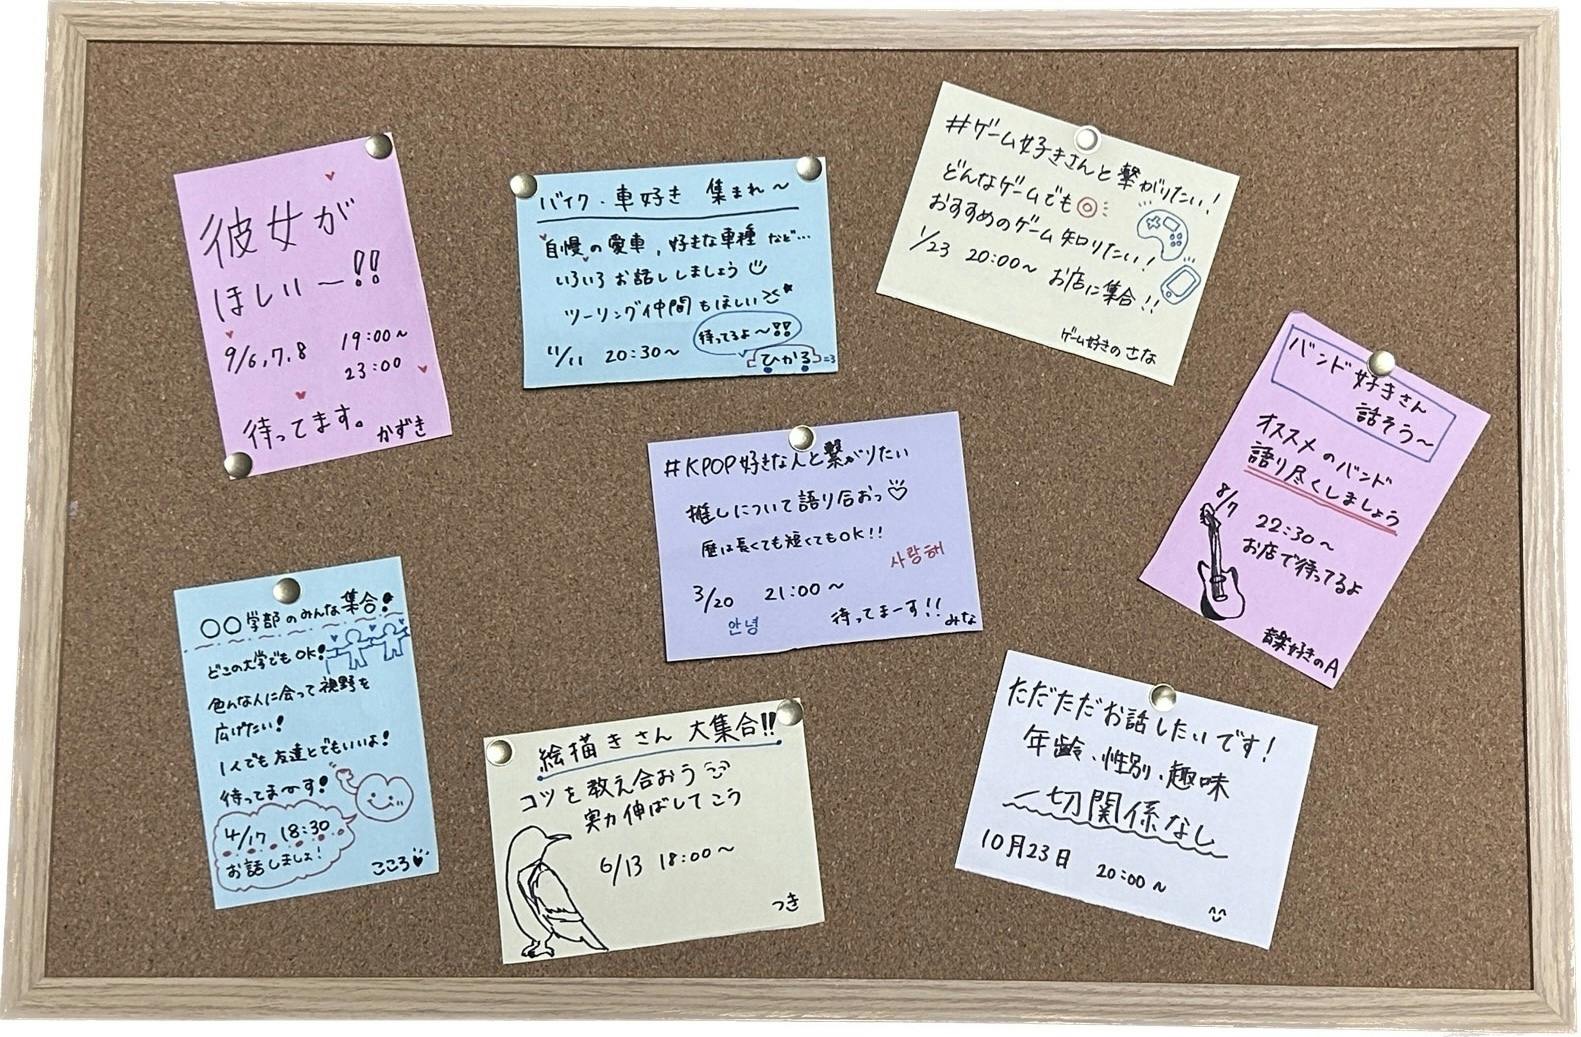 彼女が
ほしいー!!
9/6,7,8 19:00~
23:00
待ってます。 かずき
バイク・車好き 集まれ~
自慢の愛車,好きな車種など...
いろいろお話ししましょう
ツーリング仲間もほしい
待ってるよ~!!
11/11 20:30~
ひかる
#ゲーム好きさんと繋がりたい!
どんなゲームでも◎
おすすめのゲーム知りたい!
1/23 20:00~ お店に集合!!
ゲーム好きのさな
バンド好きさん
話そう~
オススメのバンド
語り尽くしましょう
8/7 22:30~
お店で待ってるよ
音楽好きのA
#KPOP好きな人と繋がりたい
推しについて語り合おっ♡
歴は長くても短くてもOK!!
사랑해
3/20 21:00~
안녕
待ってまーす!! みな
〇〇学部のみんな集合!
どこの大学でもOK!
色んな人に会って視野を
広げたい!
1人でも友達とでもいいよ!
待ってまーす!
4/17 18:30
お話しましょ!
こころ♥
絵描きさん 大集合!!
コツを教え合おう
実力伸ばしてこう
6/13 18:00~
つき
ただただお話したいです!
年齢、性別、趣味
一切関係なし
10月23日 20:00~